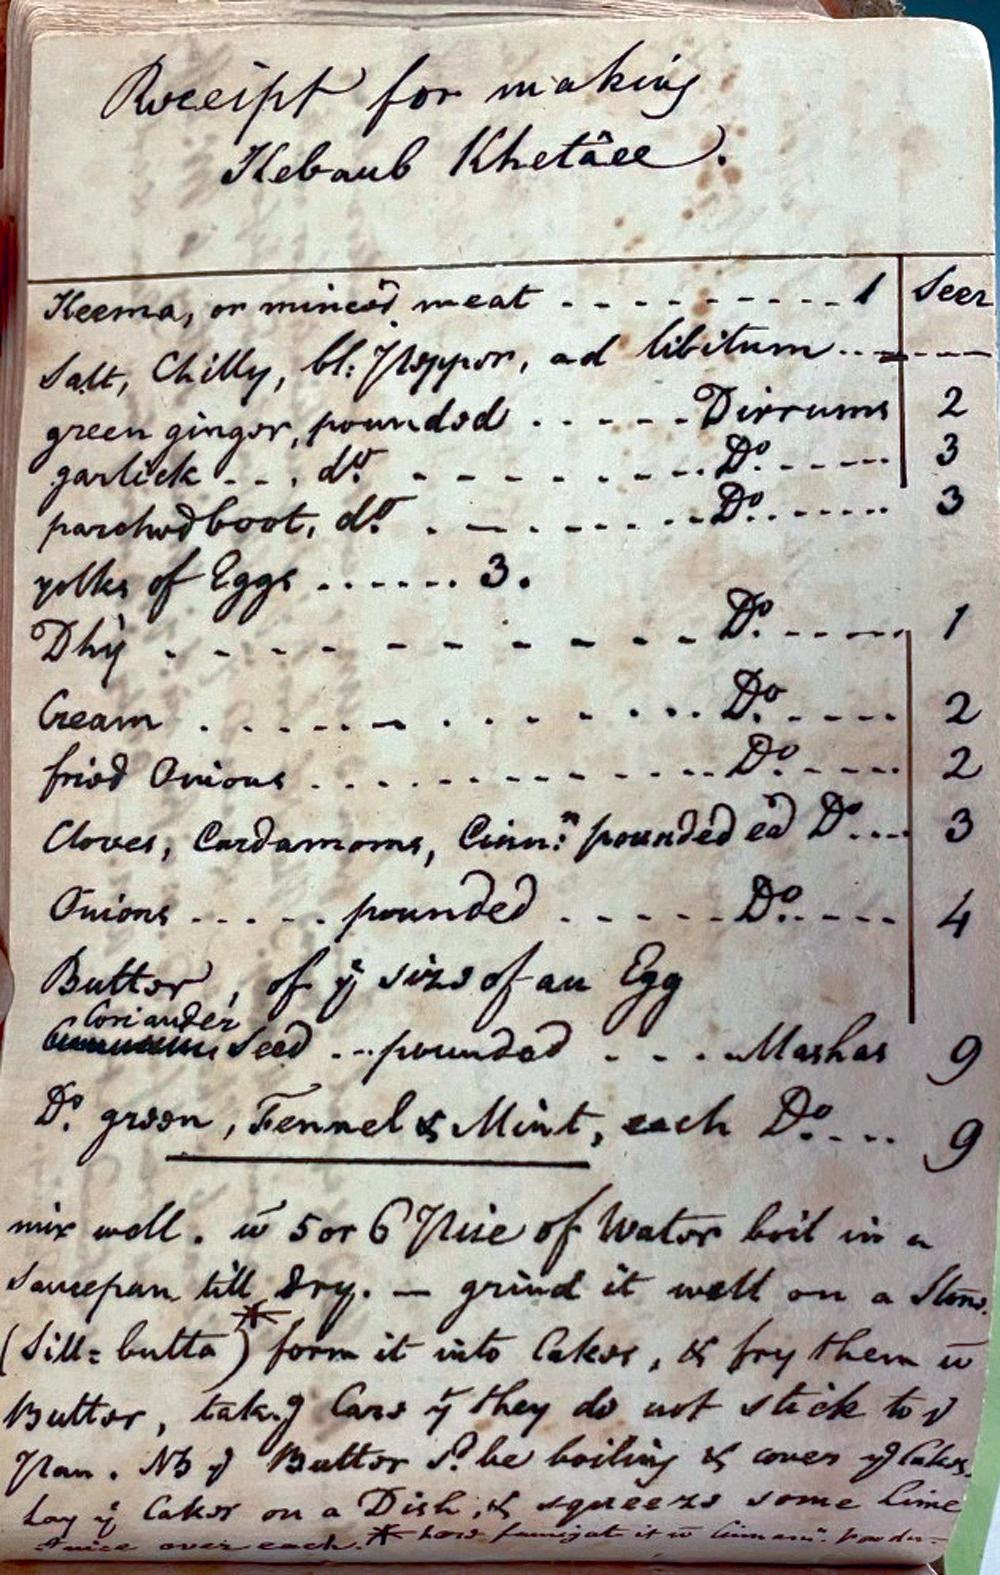 Receipt for making
Kebaub Khetâee.
Seer
Keema, or minced meat - - - - - - - - - - 1
Salt, Chilly, bl: Pepper, ad libitum - - - - -
green ginger, pounded - - - - - Dirrums 2
garlick - - . do - - - - - - - Do. - - - - 3
parched boot, do. - - - - - - - Do. - - - - 3
yolks of Eggs - - - - - - 3.
Dhy - - - - - - - - - - Do. - - - - 1
Cream - - - - - - - - - - Do. - - - - 2
fried Onions - - - - - - - - - - Do. - - - - 2
Cloves, Cardamoms, Cinn:n pounded ea Do. - - 3
Onions - - - - - pounded - - - - - Do. - - - - 4
Butter, of ye size of an Egg
Coriander
Seed - - pounded - - - - Mashas 9
Do. green, Fennel & Mint, each Do. - - - 9
mix well. w 5 or 6 Pice of Water boil in a
Saucepan till dry. — grind it well on a Stone.
(Sill=butta)* form it into Cakes, & fry them w
Butter, takg. Care yt they do not stick to ye
Pan. NB ye Butter sd. be boiling & cover ye Cakes.
Lay ye Cakes on a Dish, & squeeze some lime
Juice over each. * here fumigat it w Cinnamn. Powder